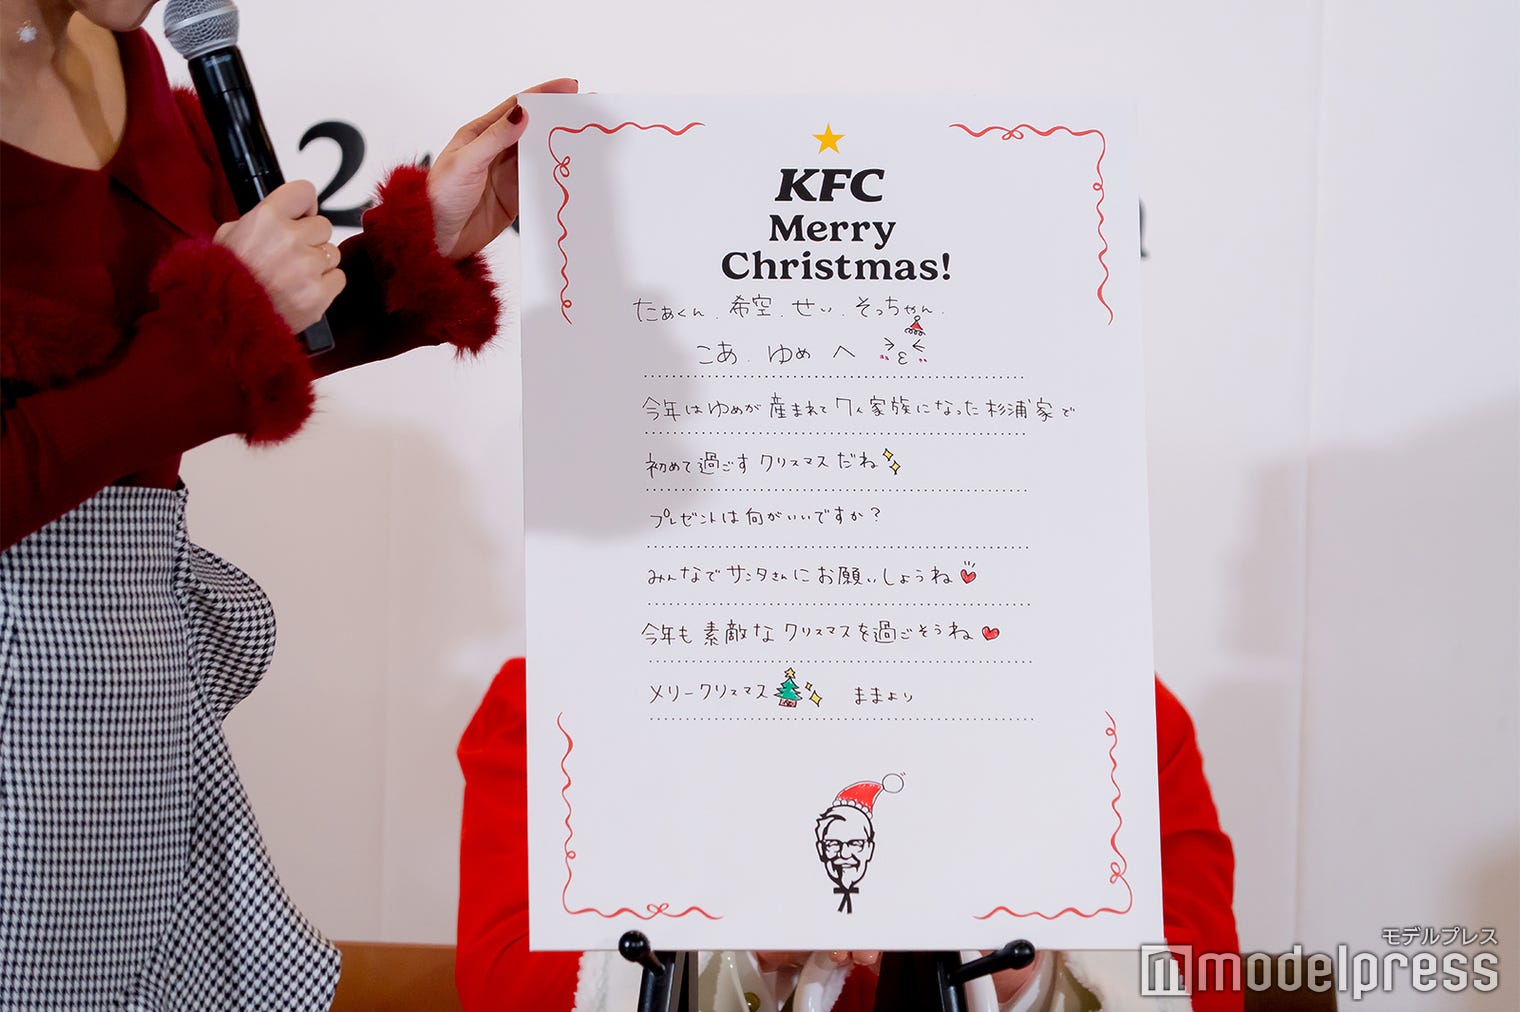 2
KFC
Merry
Christmas!
たぁくん.希空.せい.そっちゃん.
こあ.ゆめ へ
今年はゆめが産まれて7人家族になった杉浦家で
初めて過ごすクリスマスだね
プレゼントは何がいいですか？
みんなでサンタさんにお願いしようね
今年も素敵なクリスマスを過ごそうね
メリークリスマス ままより
モデルプレス
modelpress